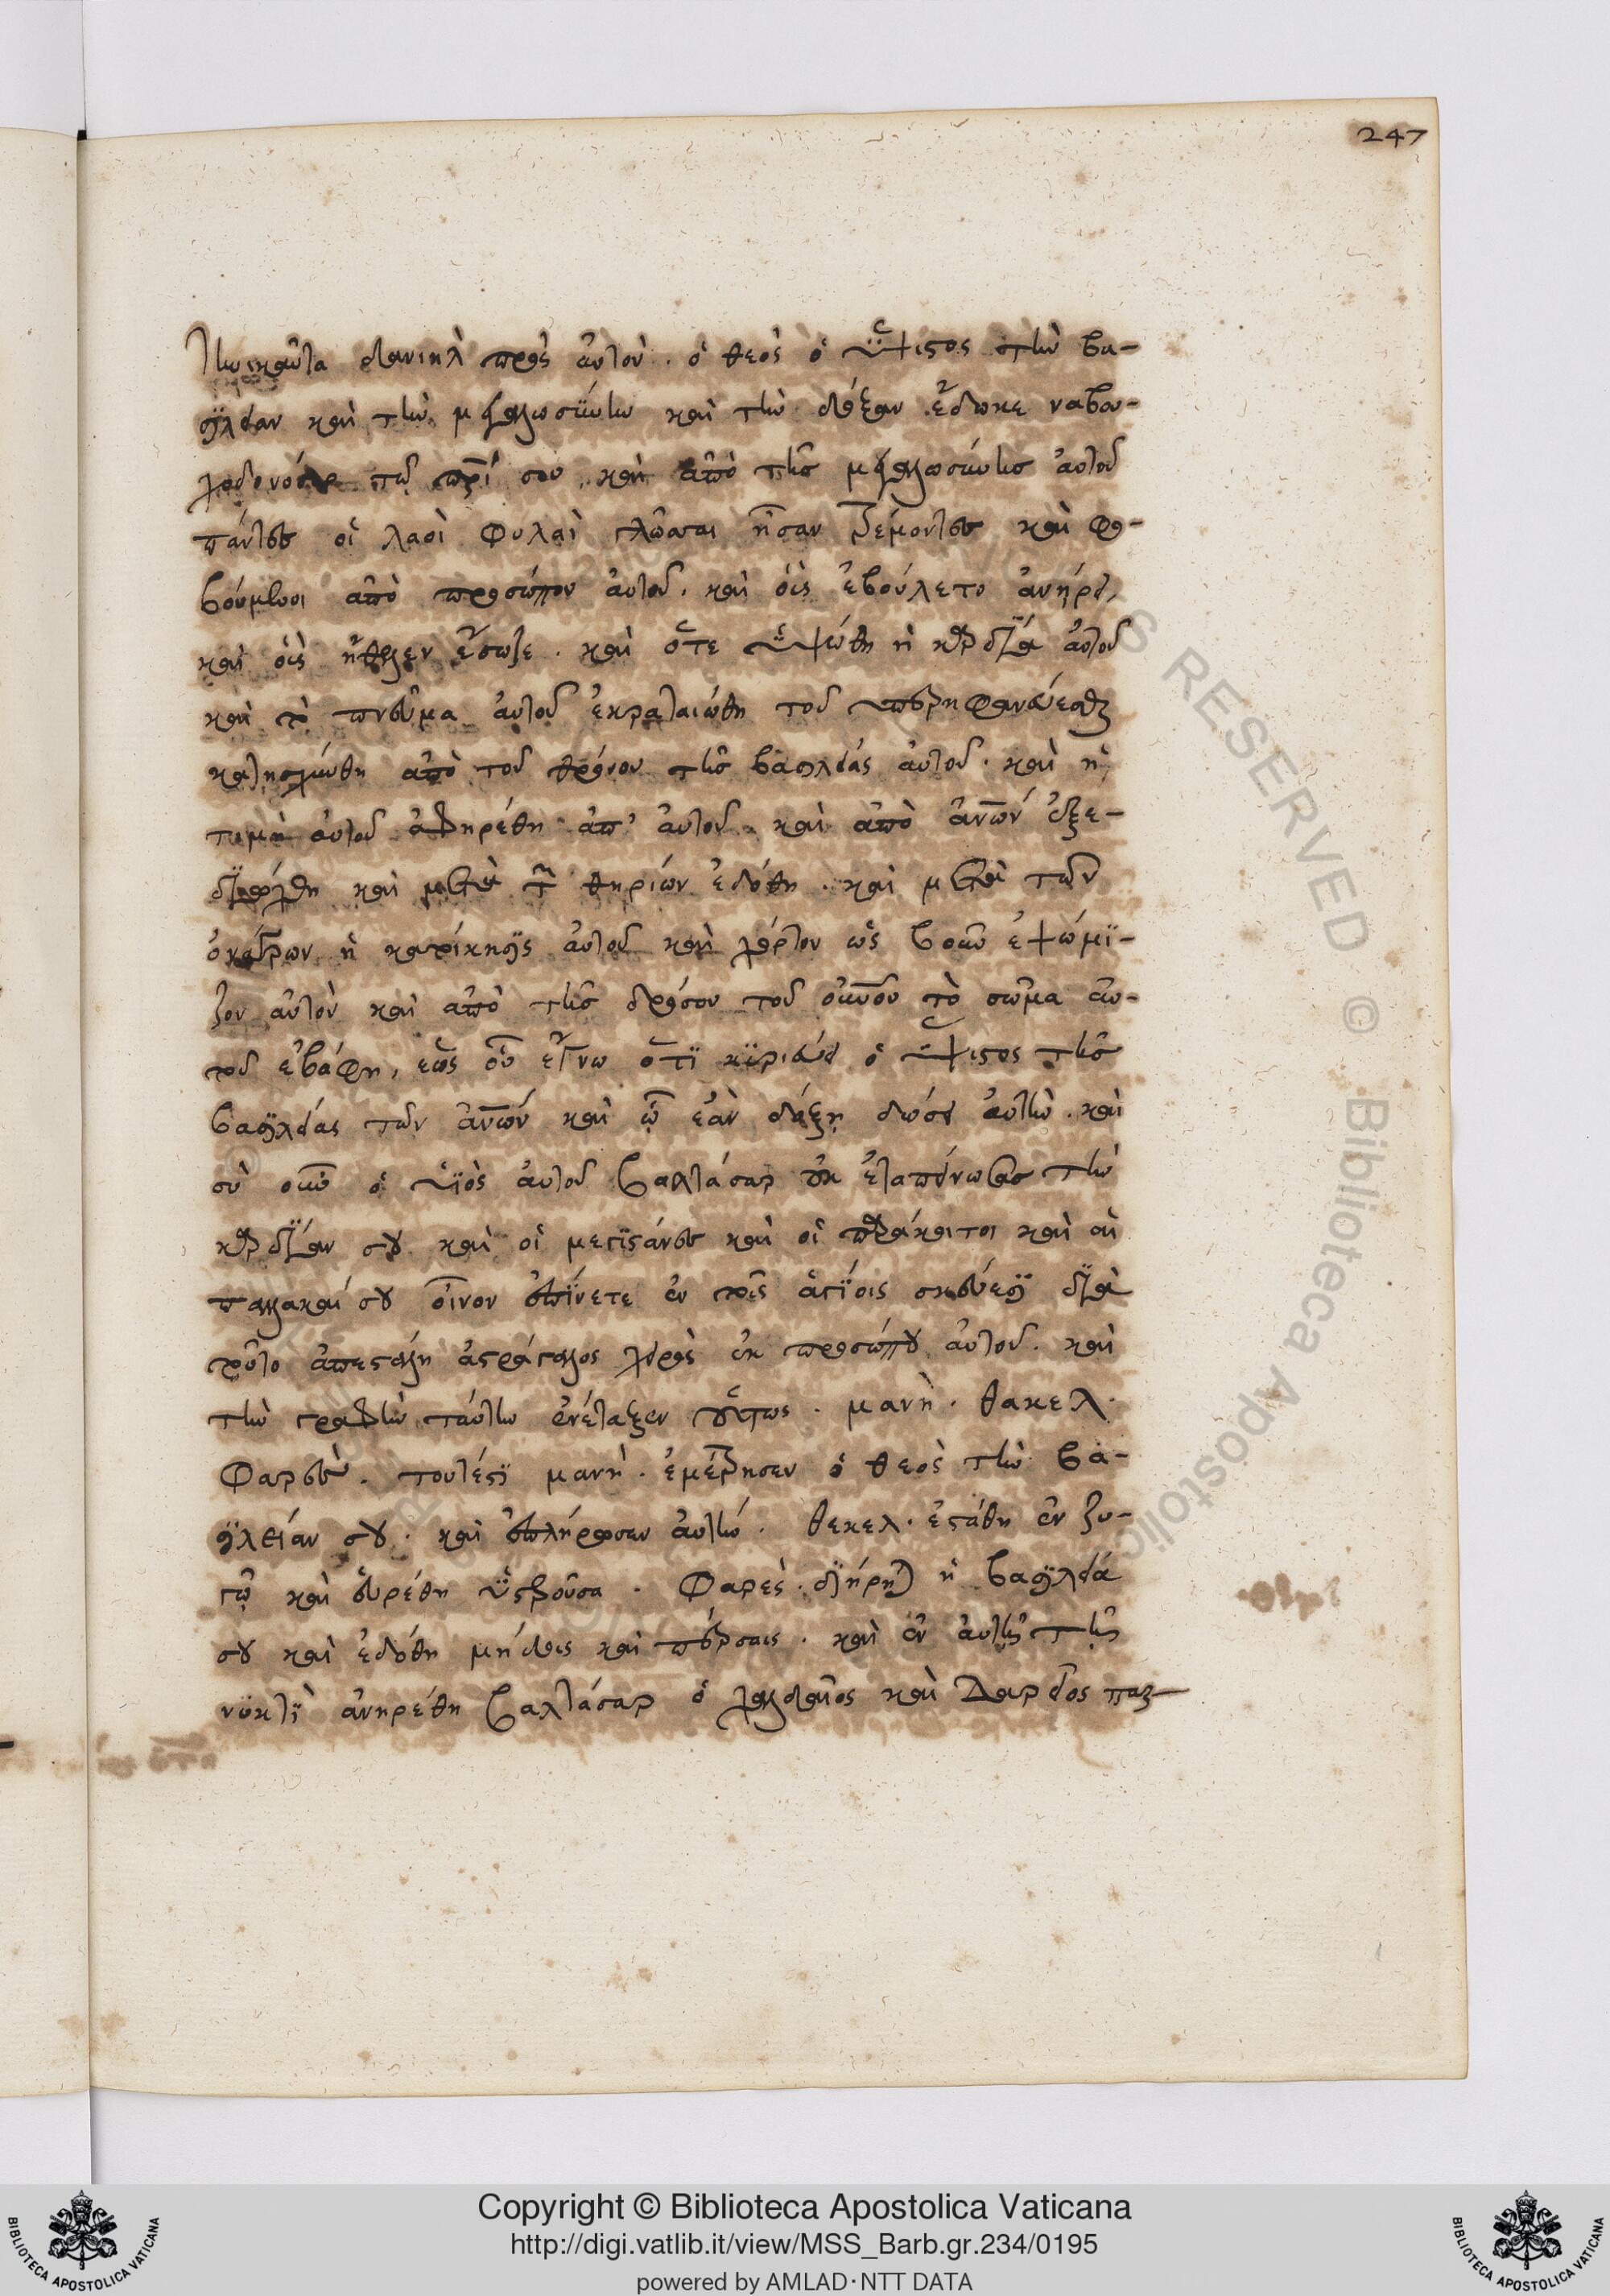 247
καὶ ταῦτα δανιηλ πρὸς αὐτὸν. ὁ θεὸς ὁ ὕψιστος τὴν βα-
σιλείαν καὶ τὴν μεγαλωσύνην καὶ τὴν δόξαν ἔδωκε ναβου-
χοδονόσορ τῷ πρί σου, καὶ ἀπὸ τῆς μεγαλωσύνης αὐτοῦ
πάντες οἱ λαοὶ φυλαὶ γλῶσσαι ἦσαν τρέμοντες καὶ φο-
βούμενοι ἀπὸ προσώπου αὐτοῦ. καὶ οὓς ἐβούλετο ἀνήρει,
καὶ οὓς ἤθελεν ἔσωζε. καὶ ὅτε ὑψώθη ἡ καρδία αὐτοῦ
καὶ τὸ πνεῦμα αὐτοῦ ἐκραταιώθη τοῦ ὑπερηφανεύεσθαι
κατηνέχθη ἀπὸ τοῦ θρόνου τῆς βασιλείας αὐτοῦ. καὶ ἡ
τιμὴ αὐτοῦ ἀφηρέθη ἀπ' αὐτοῦ. καὶ ἀπὸ ἀνῶν ἐξε-
διώχθη καὶ μετὰ τῶν θηρίων ἐδόθη. καὶ μετὰ τῶν
ὀνάγρων ἡ κατοίκησις αὐτοῦ καὶ χόρτον ὡς βοῦν ἐψώμι-
ζον αὐτὸν καὶ ἀπὸ τῆς δρόσου τοῦ οὐνοῦ τὸ σῶμα αὐ-
τοῦ ἐβάφη, ἕως οὗ ἔγνω ὅτι κυριεύει ὁ ὕψιστος τῆς
βασιλείας τῶν ἀνῶν καὶ ᾧ ἐὰν δόξῃ δώσει αὐτὴν. καὶ
σὺ οὖν ὁ υἱὸς αὐτοῦ βαλτάσαρ οὐκ ἐταπείνωσας τὴν
καρδίαν σου καὶ οἱ μεγιστάνες καὶ οἱ παράκοιτοι καὶ αἱ
παλλακαί σου οἶνον ἐπίνετε ἐν τοῖς ἁγίοις σκεύεσι διὰ
τοῦτο ἀπεστάλη ἀστράγαλος χειρὸς ἐκ προσώπου αὐτοῦ. καὶ
τὴν γραφὴν ταύτην ἐνέταξεν οὕτως. μανὴ. θακελ.
Φαρες. τουτέστι μανὴ. ἐμέτρησεν ὁ θεὸς τὴν βα-
σιλείαν σου. καὶ ἐπλήρωσεν αὐτήν. θεκελ. ἐστάθη ἐν ζυ-
γῷ καὶ εὑρέθη ὑστεροῦσα. Φαρὲς. διήρηται ἡ βασιλεία
σου καὶ ἐδόθη μήδοις καὶ πέρσαις. καὶ ἐν αὐτῇ τῇ
νυκτὶ ἀνηρέθη βαλτάσαρ ὁ χαλδαῖος καὶ Δαρεῖος παρ-
Copyright © Biblioteca Apostolica Vaticana
http://digi.vatlib.it/view/MSS_Barb.gr.234/0195
powered by AMLAD·NTT DATA